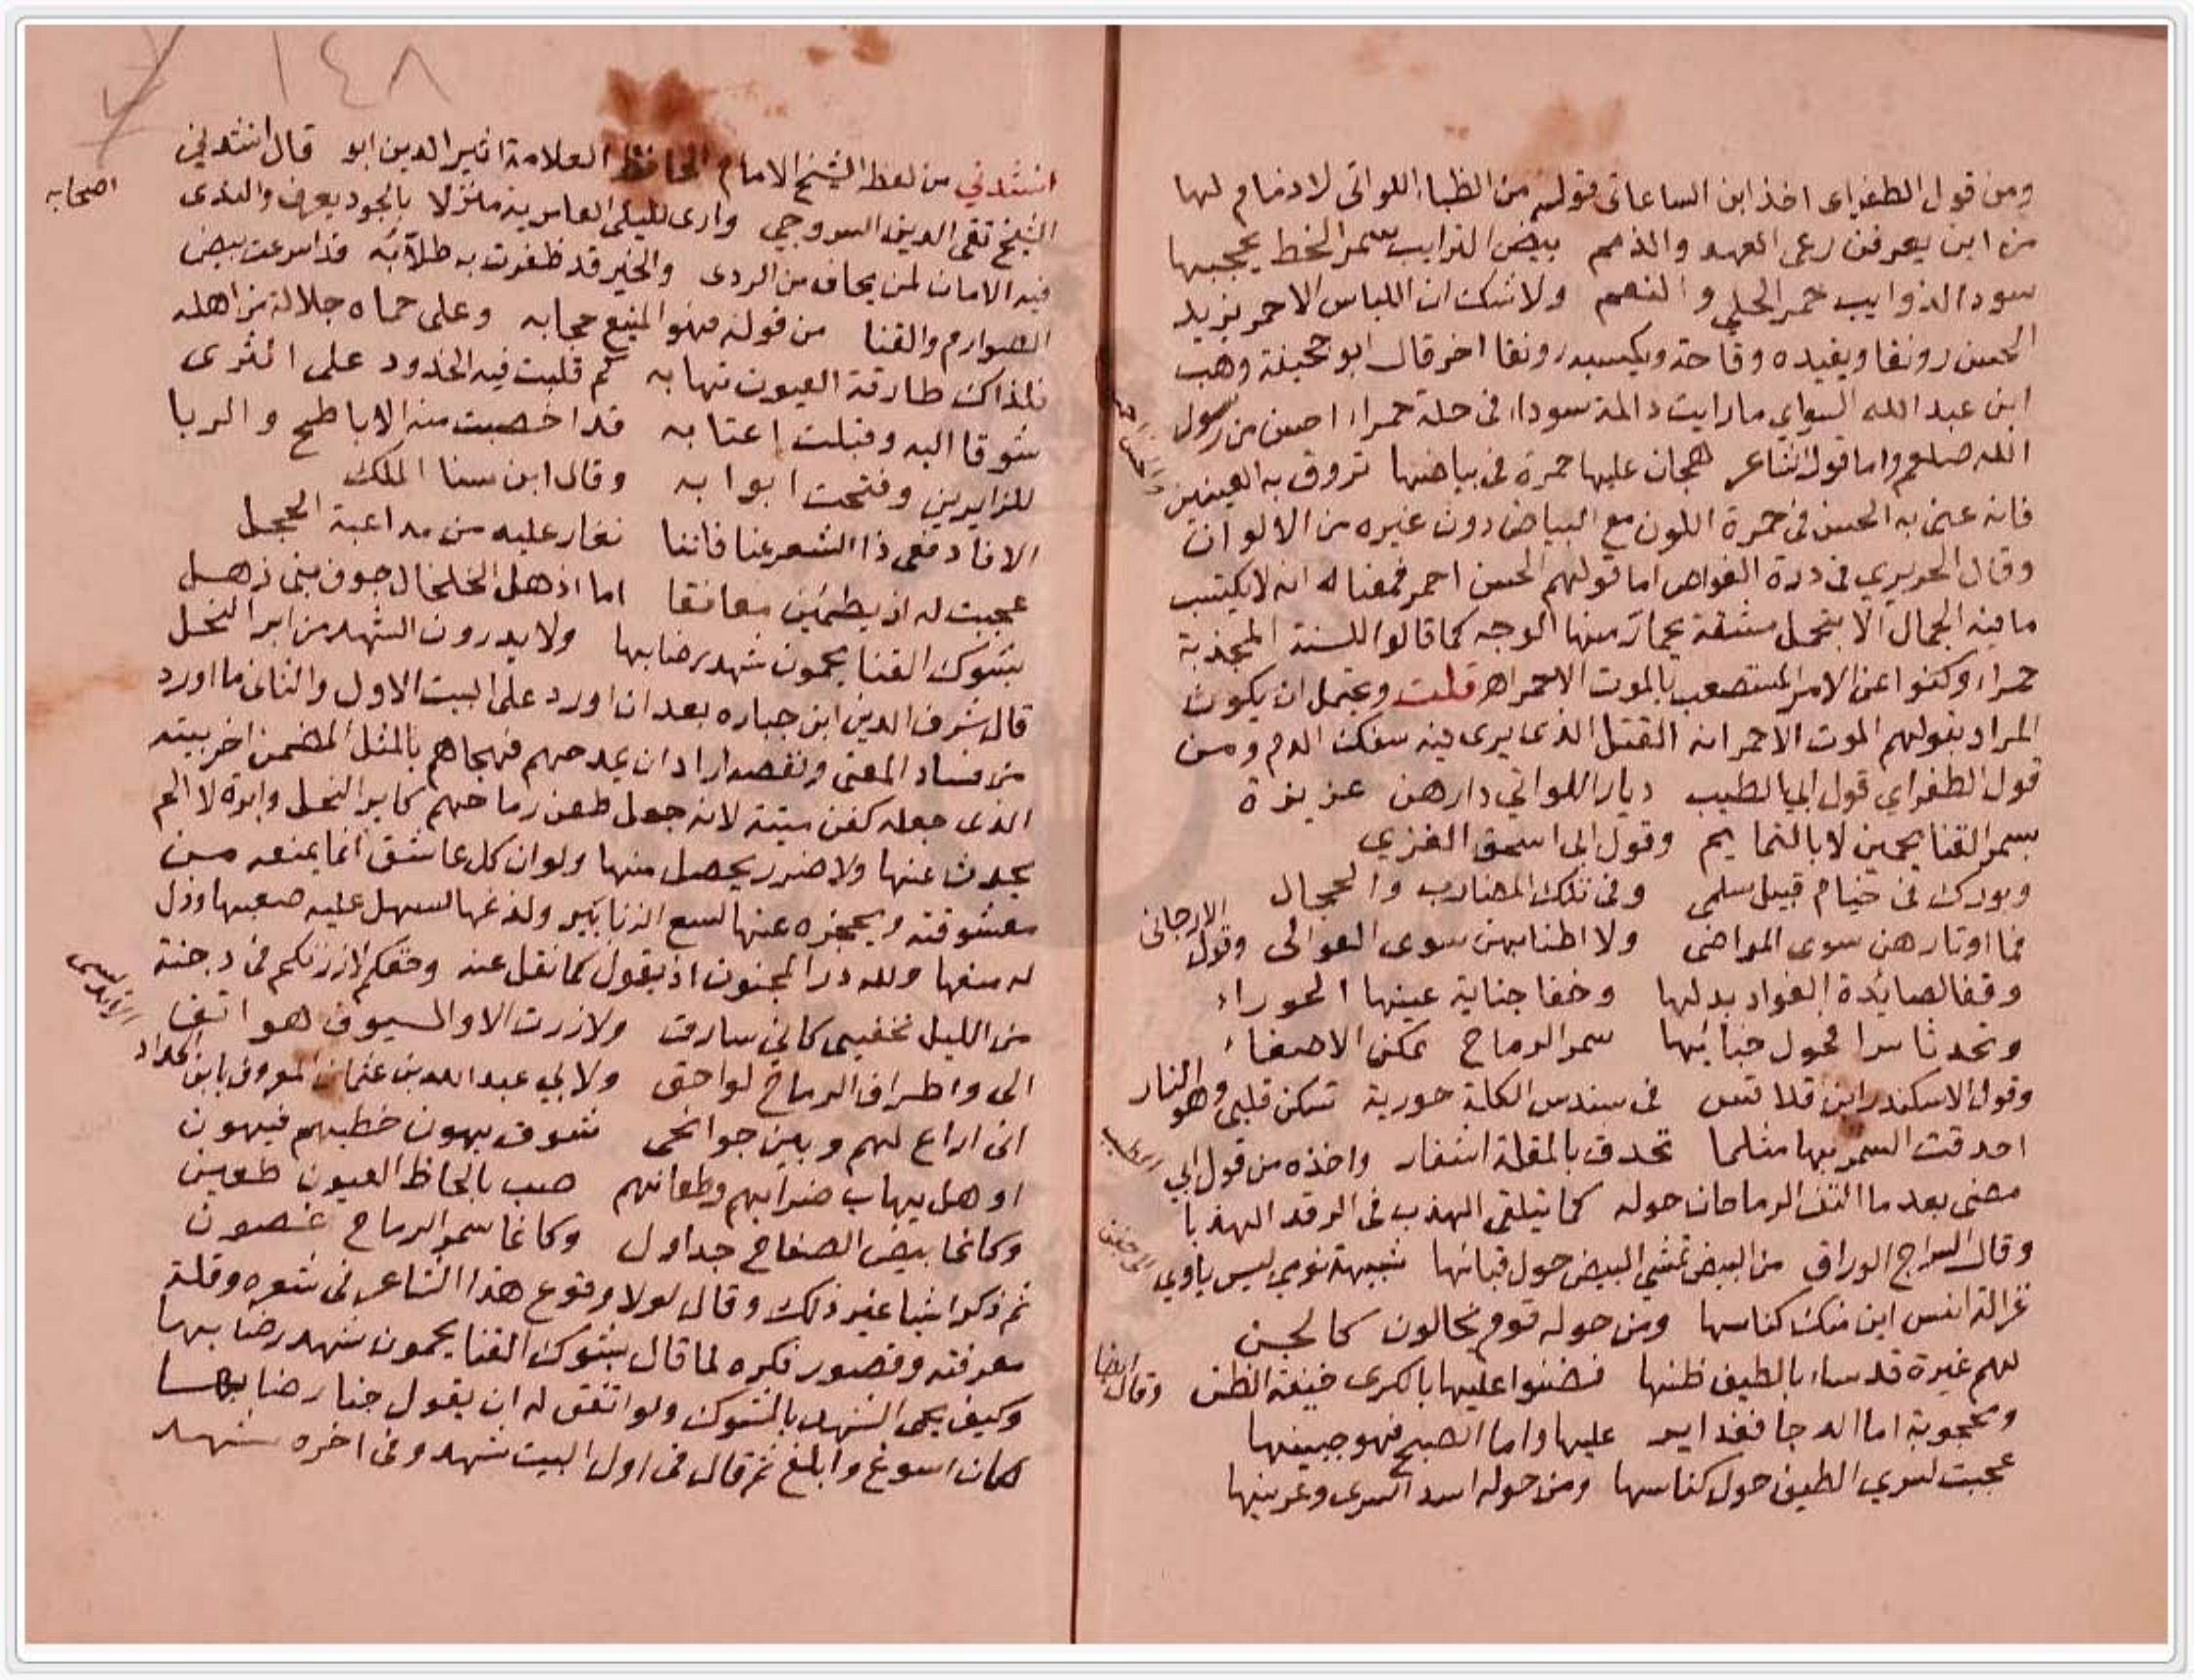 ومن قول الطغراى اخذ ابن الساعاتى قوله من الظباء اللواتى لا ذمام لها
من اين يعرفن رعى العهد والذمم بيض الترايب سمر الخط يحجبها
سود الذوايب حمر الحلي و النعم ولا شك ان اللباس الاحمر يزيد
الحسن رونقا ويفيده وقاحة ويكسبه رونقا اخر قال ابو جحيفة وهب
ابن عبد الله السواي ما رايت ذا لمة سوداء فى حلة حمراء احسن من رسول
الله صلعم واما قول الشاعر هجان عليها حمرة فى بياضها تروق به العينين
فانه عنى به الحسن فى حمرة اللون مع البياض دون غيره من الالوان
وقال الحريري فى درة الغواص اما قولهم الحسن احمر فمعناه انه لا يكتسب
ما فيه الجمال الا بتحمل مشقة يحمار منها الوجه كما قالوا للسنة المجذبة
حمراء وكنوا عن الامر المستصعب بالموت الاحمر اه قلت ويحتمل ان يكون
المراد بقولهم الموت الاحمر انه القتل الذى يرى فيه سفك الدم ومن
قول الطغراي قول ابي الطيب ديار اللواتي دارهن عزيزة
بسمر القنا يحمين لا بالتمايم وقول ابى اسحق الغزي
وبورك فى خيام قبيل سلمى وفى تلك المضارب والحجال
فما اوتارهن سوى المواضى ولا اطنابهن سوى العوالى وقول الارجانى
وقفا لصايدة الفواد بدلها وخفا جناية عينها الحوراء
وتحدثا سرا فحول خبائها سمر الرماح تمكن الاصغاء
وقول الاسكندر ابن قلاقس فى سندس الكلة حورية تسكن قلبي وهو النار
احدقت السمر بها مثلما تحدق بالمقلة اشفار واخذه من قول ابي الطيب
مضى بعد ما التف الرماحان حوله كما يتلقى الهدب فى الرقد الهدبا
وقال السراج الوراق من البيض تمشي البيض حول قبابها شبيهة نومي ليس ياوي الى جفن
غزالة انس اين منك كناسها ومن حوله قوم يخالون كالجن
لهم غيرة قد ساء بالطيف ظنها فضنوا عليها بالكرى خيفة الظن وقال ايضا
ومحجوبة اما الدجا فغداير عليها واما الصبح فهو جبينها
عجبت لسري الطيف حول كناسها ومن حوله اسد السرى وعرينها
١٤٨
انشدني من لفظ الشيخ الامام الحافظ العلامة اثير الدين ابو قال انشدني
الشيخ تقى الدين السروجي وارى لليلى العامرية منزلا بالجود يعرف والندى اصحابه
فيه الامان لمن يخاف من الردى والخير قد ظفرت به طلابه قد اسرعت بيض
الصوارم والقنا من قوله فهو المنيع حجابه وعلى حماه جلالة من اهله
فلذاك طارقة العيون تهابه كم قلبت فيه الخدود على الثرى
شوقا اليه وقبلت اعتابه قد اخصبت منه الاباطح و الربا
للزايرين وفتحت ابوابه وقال ابن سنا الملك
الا فادفعى ذا الشعر عنا فاننا نغار عليه من مداعبة الحجل
عجبت له اذ يطمين معانقا اما اذهل الخلخال جوف بنى ذهل
بشوك القنا يحمون شهد رضابها ولا بد دون الشهد من ابر النحل
قال شرف الدين ابن جباره بعد ان اورد على البيت الاول والثانى ما اورد
من فساد المعنى ونقصه اراد ان يمدحهم فهجاهم بالمثل المضمن اخر بيته
الذى جعله كفن ميتة لانه جعل طعن رماحهم كابر النحل وابرة لا الم
يحدث عنها ولا ضرر يحصل منها ولو ان كل عاشق انما يمنعه من
معشوقته ويحجزه عنها لسع الزنابير ولدغها لسهل عليه صعبها وذل
له منعها ولله در المجنون اذ يقول كما نقل عنه وحقكم لا زرتكم فى دجنة
من الليل تخفيني كاني سارق ولا زرت الا والسيوف هواتف
الى واطراف الرماح لواحق ولابي عبد الله بن عثمان المعروف بابن الحداد الاندلسى
انى اراع لهم وبين جوانحى شوق يهون خطبهم فيهون
او هل يهاب ضرابهم وطعانهم صب بالحاظ العيون طعين
وكانما بيض الصفاح جداول وكانما سمر الرماح غصون
ثم ذكر اشيا غير ذلك وقال لولا وقوع هذا الشاعر فى شعره وقلة
معرفته وقصور فكره لما قال بشوك القنا يحمون شهد رضابها
وكيف يحمى الشهد بالشوك ولو اتفق له ان يقول جنا رضابها
لكان اسوغ وابلغ ثم قال فى اول البيت شهد وفى اخره شهد